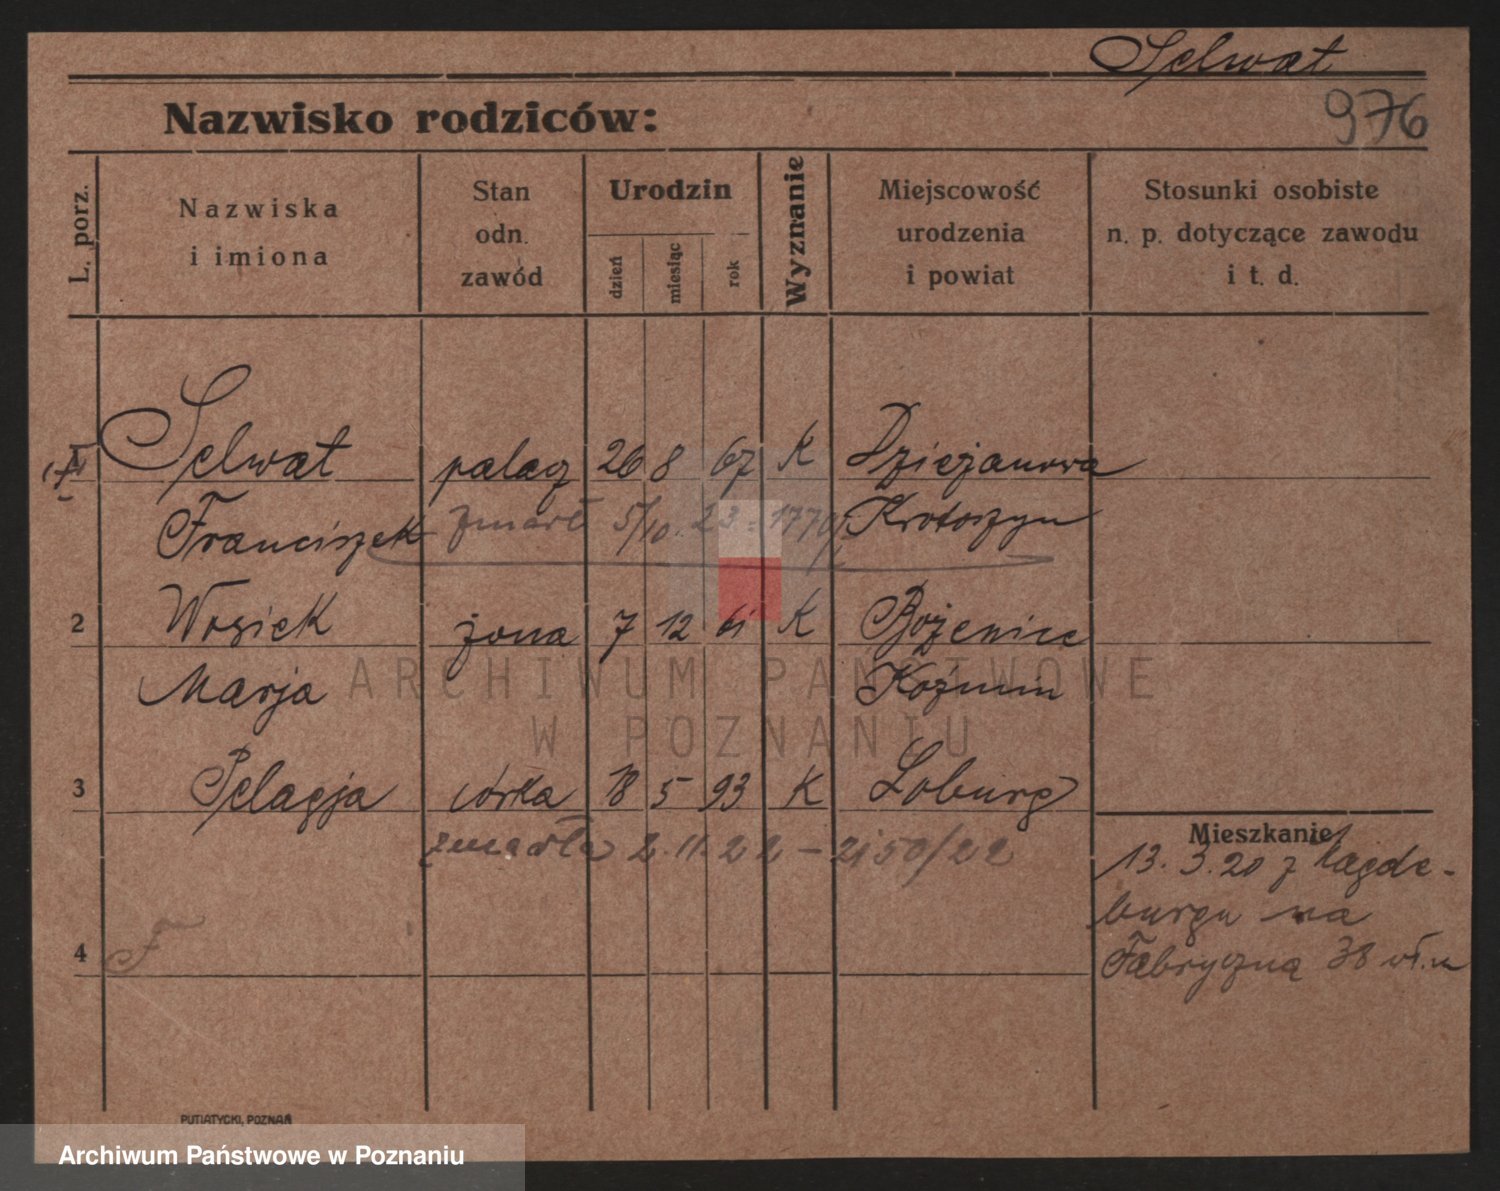 Selwat
Nazwisko rodziców:
976
L. porz.
Nazwiska
i imiona
Stan
odn.
zawód
Urodzin
dzień
miesiąc
rok
Wyznanie
Miejscowość
urodzenia
i powiat
Stosunki osobiste
n. p. dotyczące zawodu
i t. d.
Selwat palacz 26 8 67 K Dzierżanowa
Franciszek zmarł 5/10. 23 = 1770/ Krotoszyn
2 Wosiek żona 7 12 61 K Bożenice
Marja Kozmin
ARCHIWUM PAŃSTWOWE
W POZNANIU
3 Pelagja córka 18 5 93 K Loburg
zmarła 2.11.22 - 2150/22
Mieszkanie
13. 3. 20 z Magde-
burgu na
Fabryczną 38
4 F
PUTIATYCKI, POZNAŃ
Archiwum Państwowe w Poznaniu